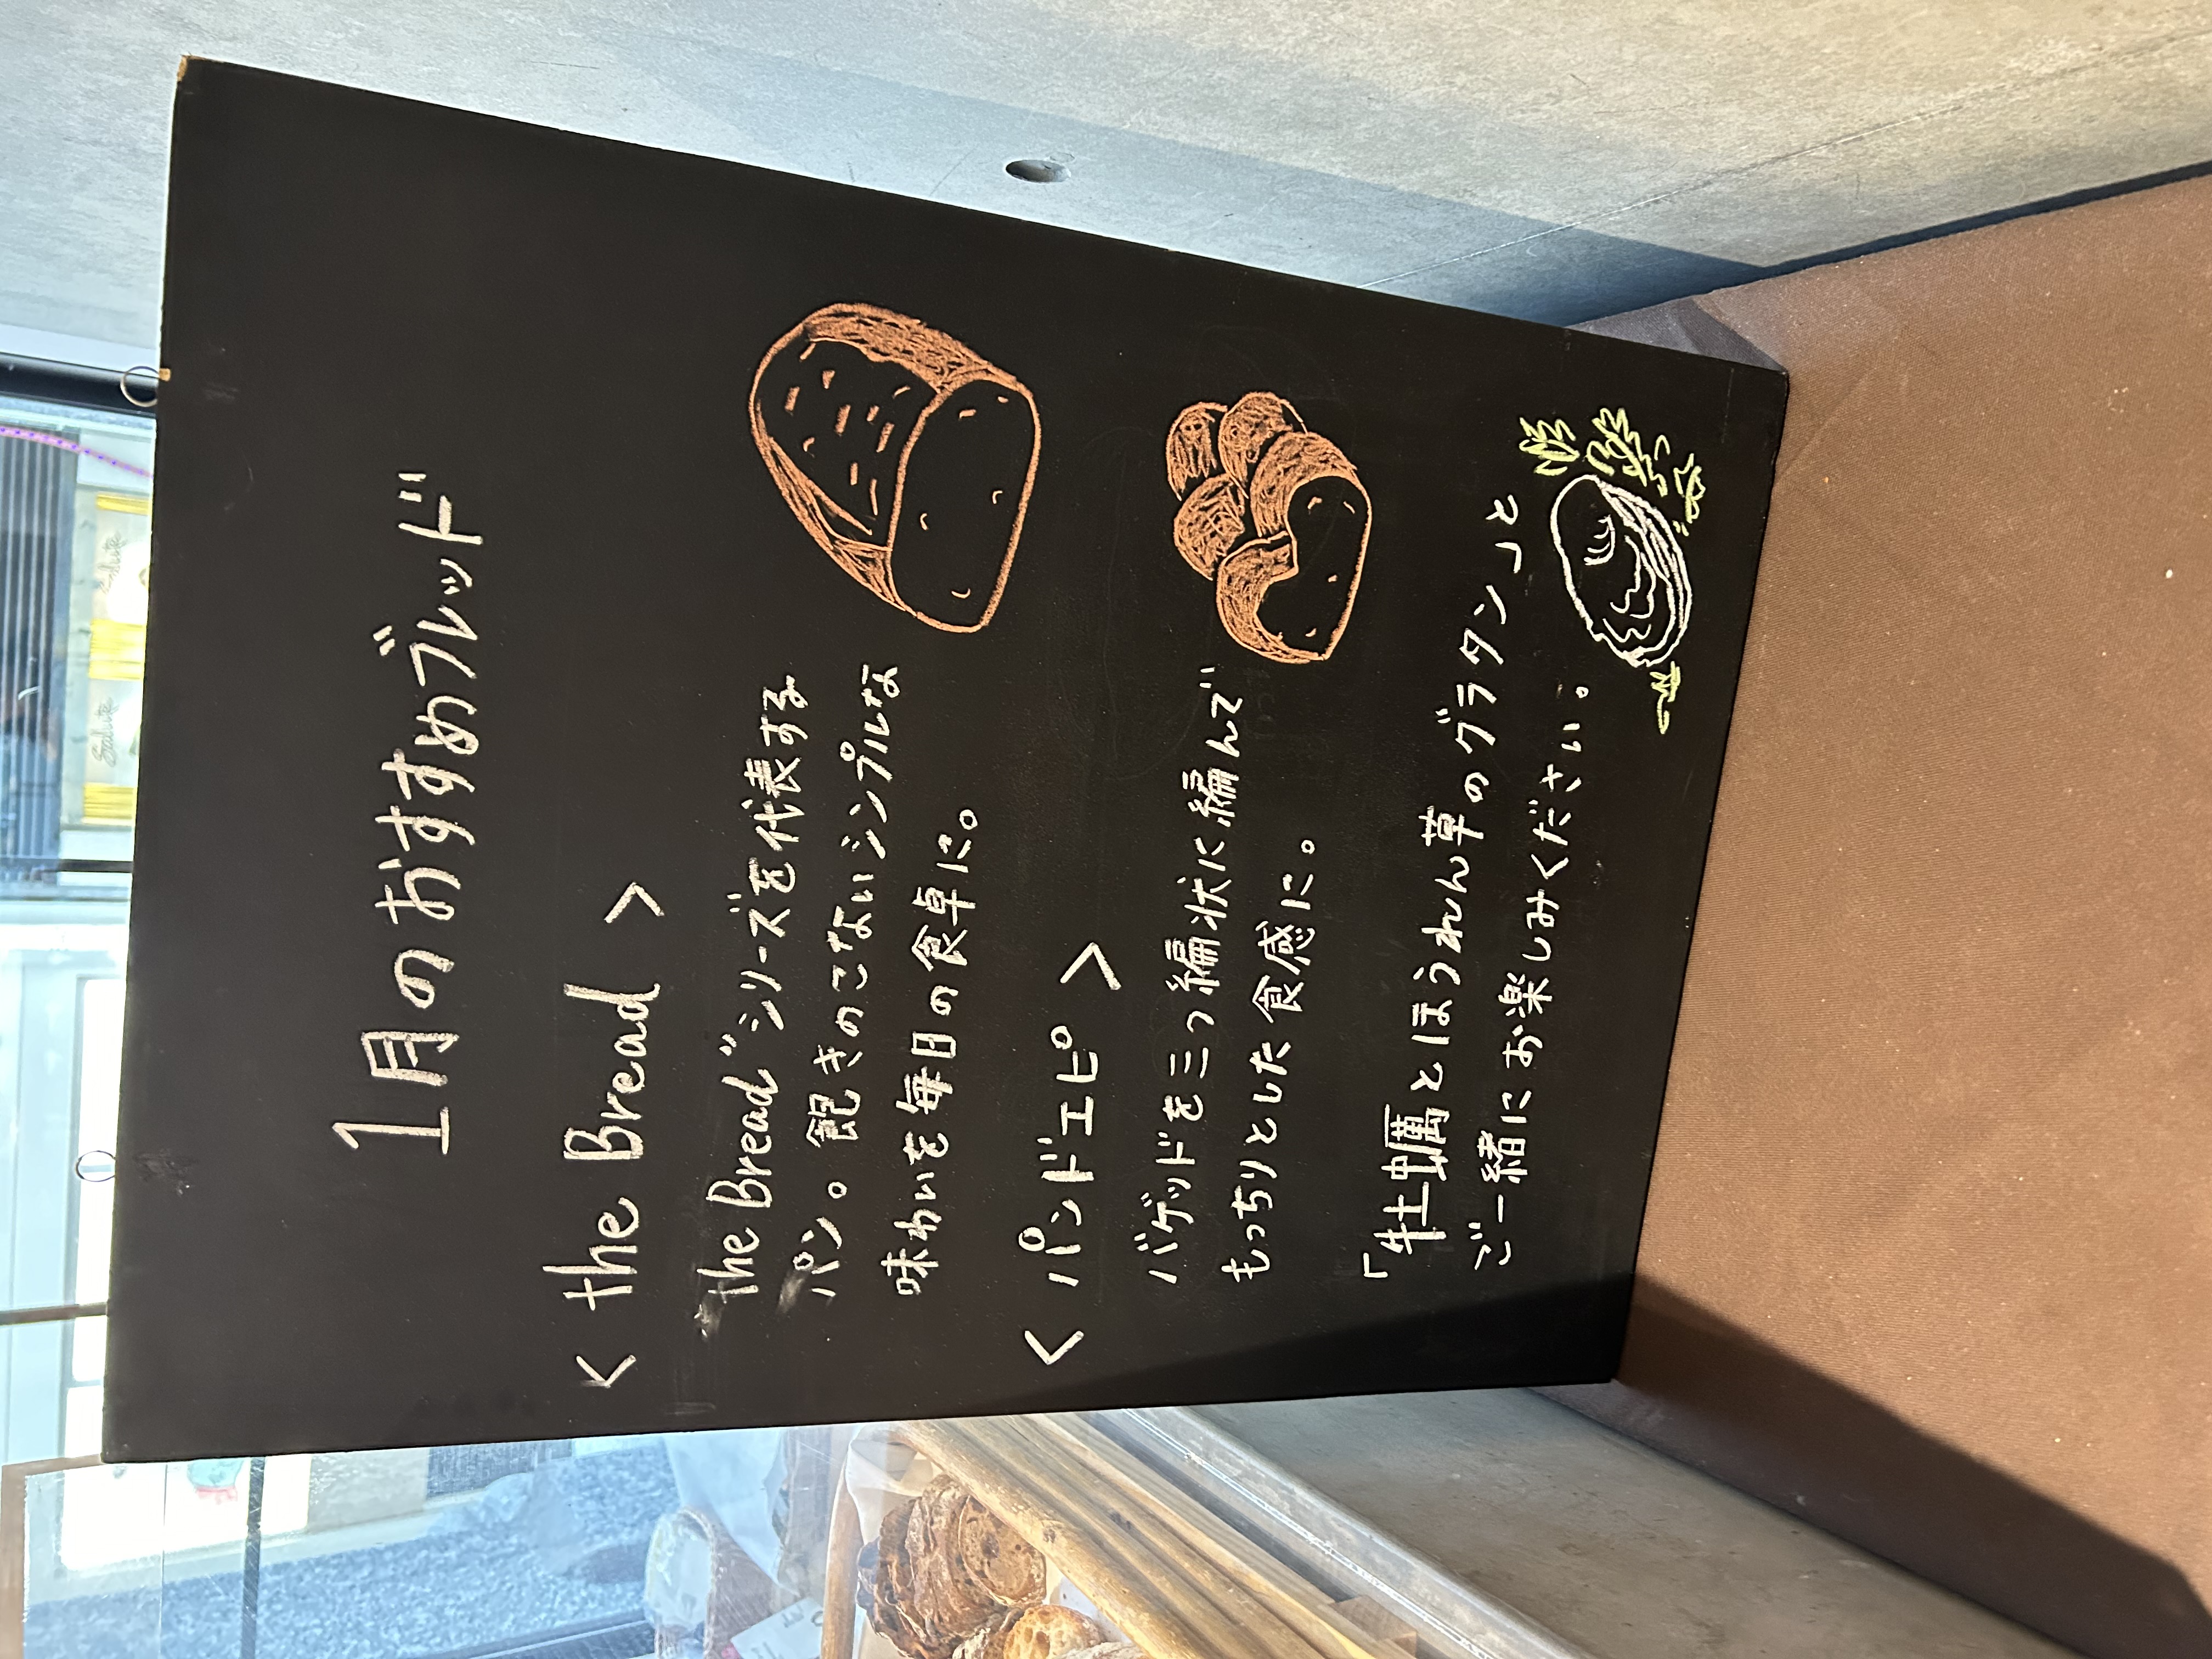 1月のおすすめブレッド
< the Bread >
"the Bread"シリーズを代表する
パン。飽きのこないシンプルな
味わいを毎日の食卓に。
< パンドエピ >
バゲッドを三つ編状に編んで
もっちりとした食感に。
「牡蠣とほうれん草のグラタン」と
ご一緒にお楽しみください。
Salute
Salute